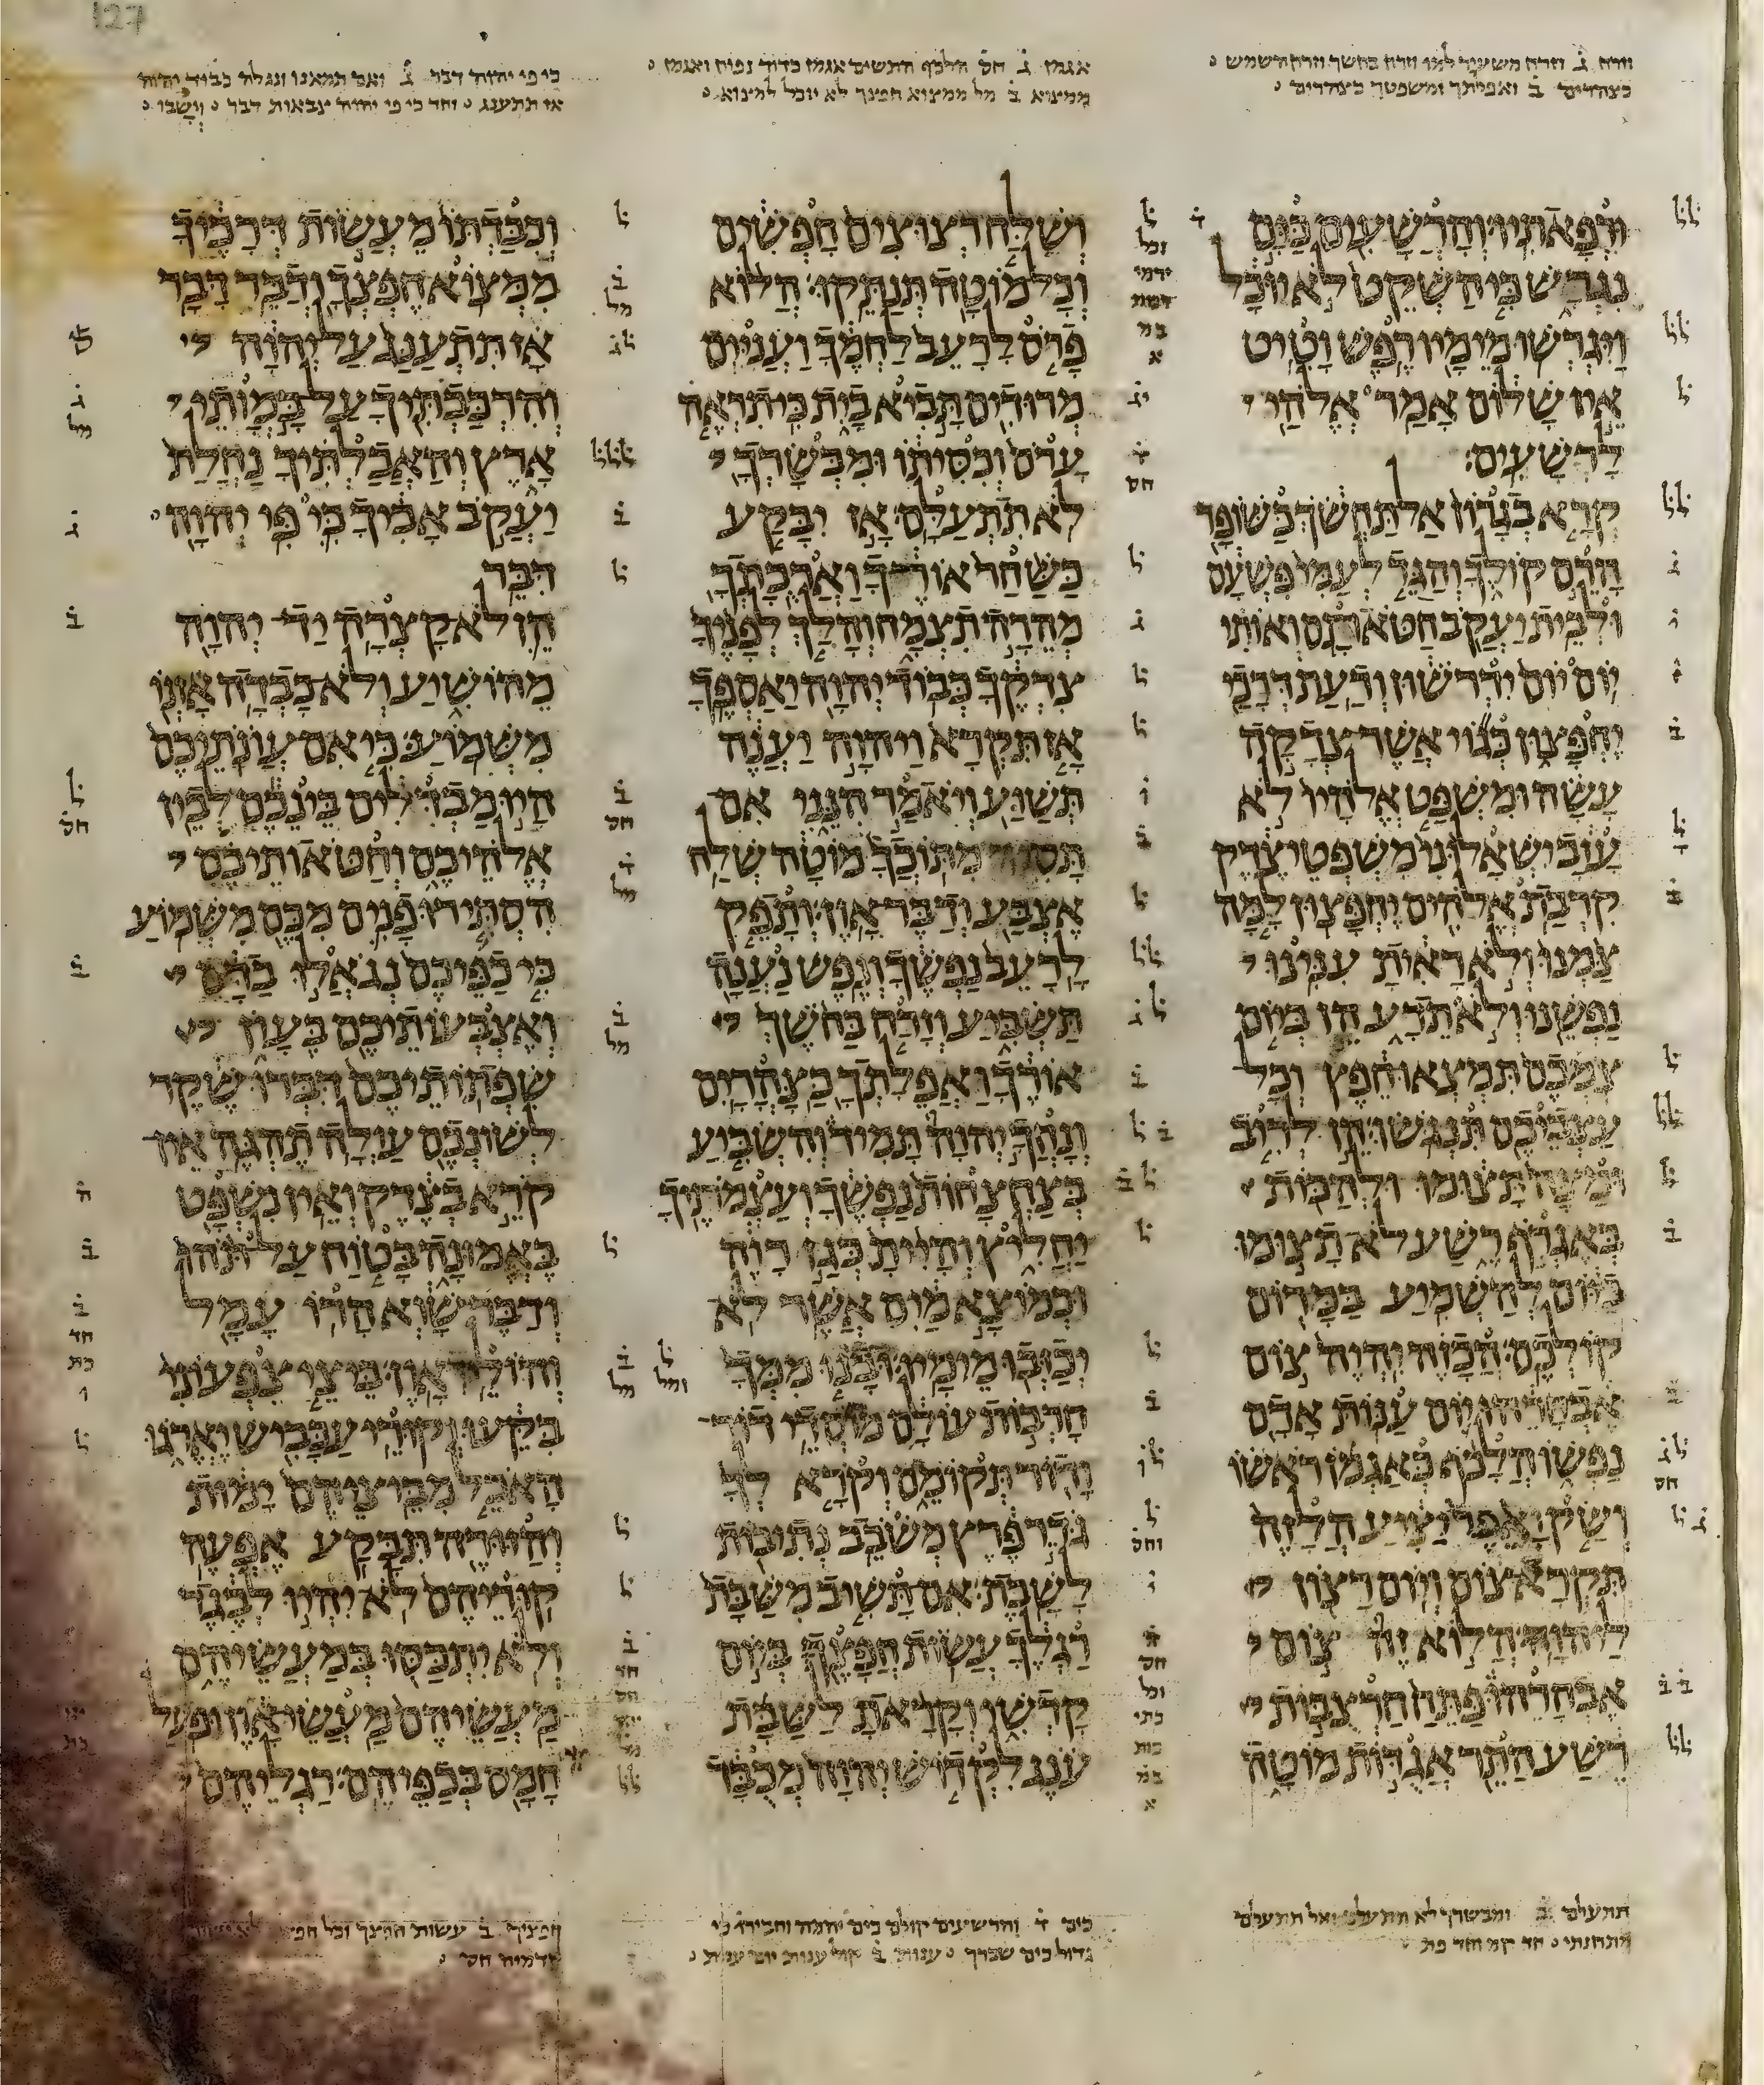 זרח ג וזרח משעיר למו וזרח בחשך וזרח השמש
כצהרים ב ואפלתך ומשפטך כצהרים
אגמן ג חס הלכף התשים אגמן כדוד נפוח ואגמן
ממצוא ב מל ממצוא חפצך לא יוכל למצוא
כי פי יהוה דבר ג ואם תמאנו ונגלה כבוד יהוה
אז תתענג וחד כי פי יהוה צבאות דבר וישבו
ורפאתיו והרשעים כים
נגרש כי השקט לא יוכל
ויגרשו מימיו רפש וטיט
אין שלום אמר אלהי
לרשעים׃
קרא בגרון אל תחשך כשופר
הרם קולך והגד לעמי פשעם
ולבית יעקב חטאתם ואותי
יום יום ידרשון ודעת דרכי
יחפצון כגוי אשר צדקה
עשה ומשפט אלהיו לא
עזב ישאלוני משפטי צדק
קרבת אלהים יחפצון למה
צמנו ולא ראית ענינו
נפשנו ולא תדע הן ביום
צמכם תמצאו חפץ וכל
עצביכם תנגשו׃ הן לריב
ומצה תצומו ולהכות
באגרף רשע לא תצומו
כיום להשמיע במרום
קולכם׃ הכזה יהיה צום
אבחרהו יום ענות אדם
נפשו הלכף כאגמן ראשו
ושק ואפר יציע הלזה
תקרא צום ויום רצון
ליהוה׃ הלוא זה צום
אבחרהו פתח חרצבות
רשע התר אגדות מוטה
ושלח רצוצים חפשים
וכל מוטה תנתקו׃ הלוא
פרס לרעב לחמך ועניים
מרודים תביא בית כי תראה
ערם וכסיתו ומבשרך
לא תתעלם׃ אז יבקע
כשחר אורך וארכתך
מהרה תצמח והלך לפניך
צדקך כבוד יהוה יאספך
אז תקרא ויהוה יענה
תשוע ויאמר הנני אם
תסיר מתוכך מוטה שלח
אצבע ודבר און׃ ותפק
לרעב נפשך ונפש נענה
תשביע וזרח בחשך
אורך ואפלתך כצהרים
ונחך יהוה תמיד והשביע
בצחצחות נפשך ועצמתיך
יחליץ והיית כגן רוה
וכמוצא מים אשר לא
יכזבו מימיו׃ ובנו ממך
חרבות עולם מוסדי דור
ודור תקומם וקרא לך
גדר פרץ משבב נתיבות
לשבת׃ אם תשיב משבת
רגלך עשות חפצך ביום
קדשי וקראת לשבת
ענג לקדוש יהוה מכבד
וכבדתו מעשות דרכיך
ממצוא חפצך ודבר דבר
אז תתענג על יהוה
והרכבתיך על במותי
ארץ והאכלתיך נחלת
יעקב אביך כי פי יהוה
דבר
הן לא קצרה יד יהוה
מהושיע ולא כבדה אזנו
משמוע׃ כי אם עונתיכם
היו מבדלים בינכם לבין
אלהיכם וחטאותיכם
הסתירו פנים מכם משמוע
כי כפיכם נגאלו בדם
ואצבעותיכם בעון
שפתותיכם דברו שקר
לשונכם עולה תהגה אין
קרא בצדק ואין נשפט
באמונה בטוח על תהו
ודבר שוא הרו עמל
והוליד און׃ ביצי צפעוני
בקעו וקורי עכביש יארגו
האכל מביציהם ימות
והזורה תבקע אפעה
קוריהם לא יהיו לבגד
ולא יתכסו במעשיהם
מעשיהם מעשי און ופעל
חמס בכפיהם׃ רגליהם
תתעלם ב ומבשרך לא תתעלם ואל תתעלם
מתחנתי
כים ד והרשעים קולם כים יהמה
גדול כים שברך ענות ב קול ענות יום ענות
חפציך ב עשות חפצך וכל